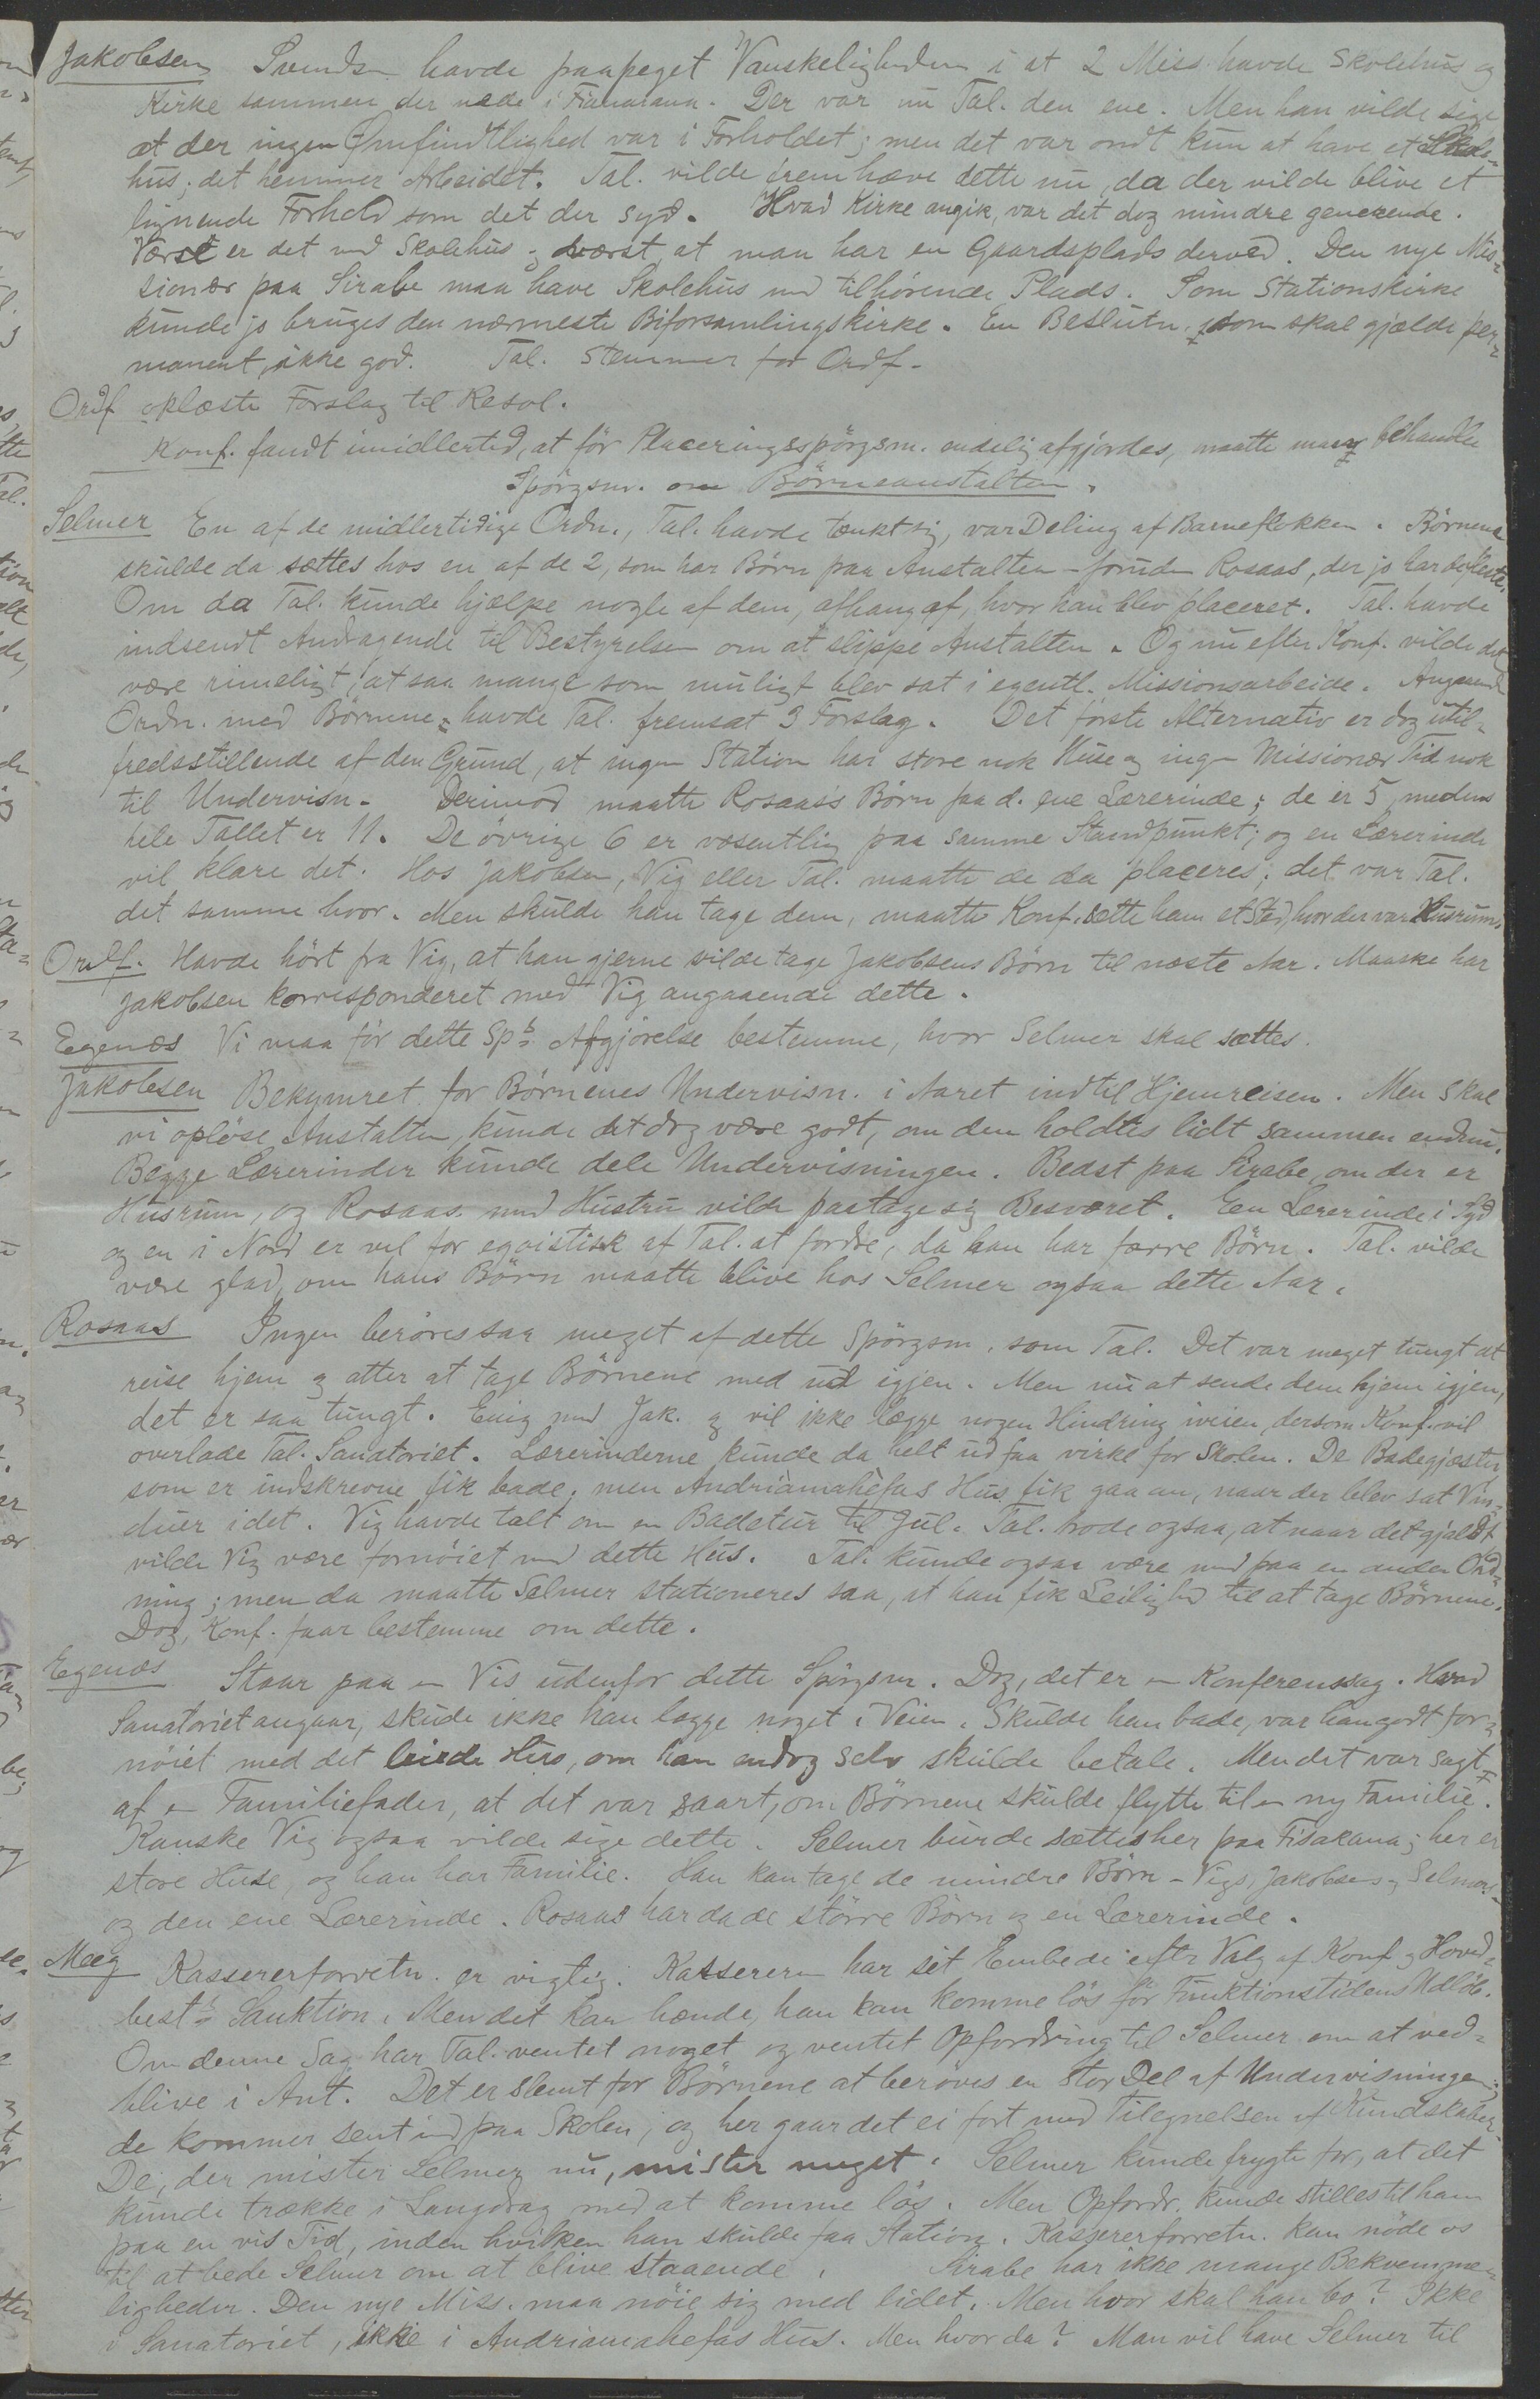 Jakobsen Svendsen havde paapeget Vanskeligheden i at 2 Miss. havde Skolehus og
Kirke sammen der nede i Fianarana. Der var nu Tal. den ene. Men han vilde sige
at der ingen Ømfindtlighed var i Forholdet; men det var ondt kun at have et Skole-
hus; det hemmer Arbeidet. Tal. vilde fremhæve dette nu, da der vilde blive et
lignende Forhold som det der syd. Hvad Kirke angik, var det dog mindre generende.
Værst er det med Skolehus og værst, at man har en Gaardsplads derved. Den nye Mis-
sionær paa Sirabe maa have Skolehus med tilhørende Plads. Som Stationskirke
kunde jo bruges den nærmeste Biforsamlingskirke. En Beslutn., som skal gjælde per-
manent, ikke god. Tal. stemmer for Ordf.
Ordf oplæste Forslag til Resol.
Konf. fandt imidlertid, at för Placeringsspörgsm. endelig afgjordes, maatte man behandle
Spörgsm. om Börneanstalten.
Selmer En af de midlertidige Ordn., Tal. havde tænkt sig, var Deling af Barneflokken. Börnene
skulde da sættes hos en af de 2, som har Börn paa Anstalten - foruden Rosaas, der jo har de fleste.
Om da Tal. kunde hjælpe nogle af dem, afhang af, hvor han blev placeret. Tal. havde
indsendt Andragende til Bestyrelsen om at slippe Anstalten. Og nu efter Konf. vilde det
være rimeligt, at saa mange som muligt blev sat i egentl. Missionsarbeide. Angaaende
Ordn. med Börnene havde Tal. fremsat 3 Forslag. Det første Alternativ er dog util-
fredsstillende af den Grund, at ingen Station har store nok Huse og ingen Missionær Tid nok
til Undervisn. Derimod maatte Rosaas's Börn faa d. ene Lærerinde; de er 5, medens
hele Tallet er 11. De övrige 6 er væsentlig paa samme Standpunkt; og en Lærerinde
vil klare det. Hos Jakobsen, Vig eller Tal. maatte de da placeres; det var Tal.
det samme hvor. Men skulde han tage dem, maatte Konf. sætte ham et Sted, hvor der var Husrum.
Ordf. Havde hört fra Vig, at han gjerne vilde tage Jakobsens Börn til næste Aar. Maaske har
Jakobsen korresponderet med Vig angaaende dette.
Egenæs Vi maa för dette Sps Afgjörelse bestemme, hvor Selmer skal sættes.
Jakobsen Bekymret for Börnenes Undervisn. i Aaret indtil Hjemreisen. Men skal
vi oplöse Anstalten, kunde det dog være godt, om den holdtes lidt sammen endnu.
Begge Lærerinder kunde dele Undervisningen. Bedst paa Sirabe, om der er
Husrum, og Rosaas med Hustru vilde paatage sig Besværet. Een Lærerinde i Syd
og en i Nord er vel for egoistisk af Tal. at fordre, da han har færre Börn. Tal. vilde
være glad, om hans Börn maatte blive hos Selmer ogsaa dette Aar.
Rosaas Ingen beröres saa meget af dette Spörgsm. som Tal. Det var meget tungt at
reise hjem og atter at tage Börnene med ud igjen. Men nu at sende dem hjem igjen,
det er saa tungt. Enig med Jak. og vil ikke lægge nogen Hindring iveien, dersom Konf. vil
overlade Tal. Sanatoriet. Lærerinderne kunde da helt ud faa virke for Skolen. De Badegjæster,
som er indskrevne fik bade; men Andriamahefas Hus fik gaa an, naar der blev sat Vin-
duer i det. Vig havde talt om en Badetur til Jul. Tal. trode ogsaa, at naar det gjaldt
vilde Vig være fornöiet med dette Hus. Tal. kunde ogsaa være med paa en anden Ord-
ning; men da maatte Selmer stationeres saa, at han fik Leilighed til at tage Börnene.
Dog, Konf. faar bestemme om dette.
Egenæs Staar paa en Vis udenfor dette Spörgsm. Dog, det er en Konferenssag. Hvad
Sanatoriet angaar, skude ikke han lægge noget i Veien. Skulde han bade, var han godt for-
nöiet med det leiede Hus, om han endog selv skulde betale. Men det var sagt
af en Familiefader, at det var saart, om Börnene skulde flytte til en ny Familie.
Kanske Vig ogsaa vilde sige dette. Selmer burde sættes her paa Fisakana; her er
store Huse, og han har Familie. Han kan tage de mindre Börn - Vigs, Jakobsens og Selmers -
og den ene Lærerinde. Rosaas har da de större Börn og en Lærerinde.
Meeg Kassererforretn. er vigtig. Kassereren har sit Embede efter Valg af Konf. og Hoved-
best's Sanktion. Men det kan hænde, han kan komme lös för Funktionstidens Udlöb.
Om denne Sag har Tal. ventet noget og ventet Opfordring til Selmer om at ved-
blive i Ant. Det er slemt for Börnene at beröves en stor Del af Undervisningen;
de kommer sent ind paa Skolen, og her gaar det ei fort med Tilegnelsen af Kundskaber.
De, der mister Selmer nu, mister meget. Selmer kunde frygte for, at det
kunde trække i Langdrag med at komme lös. Men Opfordr. kunde stilles til ham
paa en vis Tid, inden hvilken han skulde faa Station. Kassererforretn. kan nöde os
til at bede Selmer om at blive staaende. Sirabe har ikke mange Bekvemme-
ligheder. Den nye Miss. maa nöie sig med lidet. Men hvor skal han bo? Ikke
i Sanatoriet, ikke i Andriamahefas Hus. Men hvor da? Man vil have Selmer til